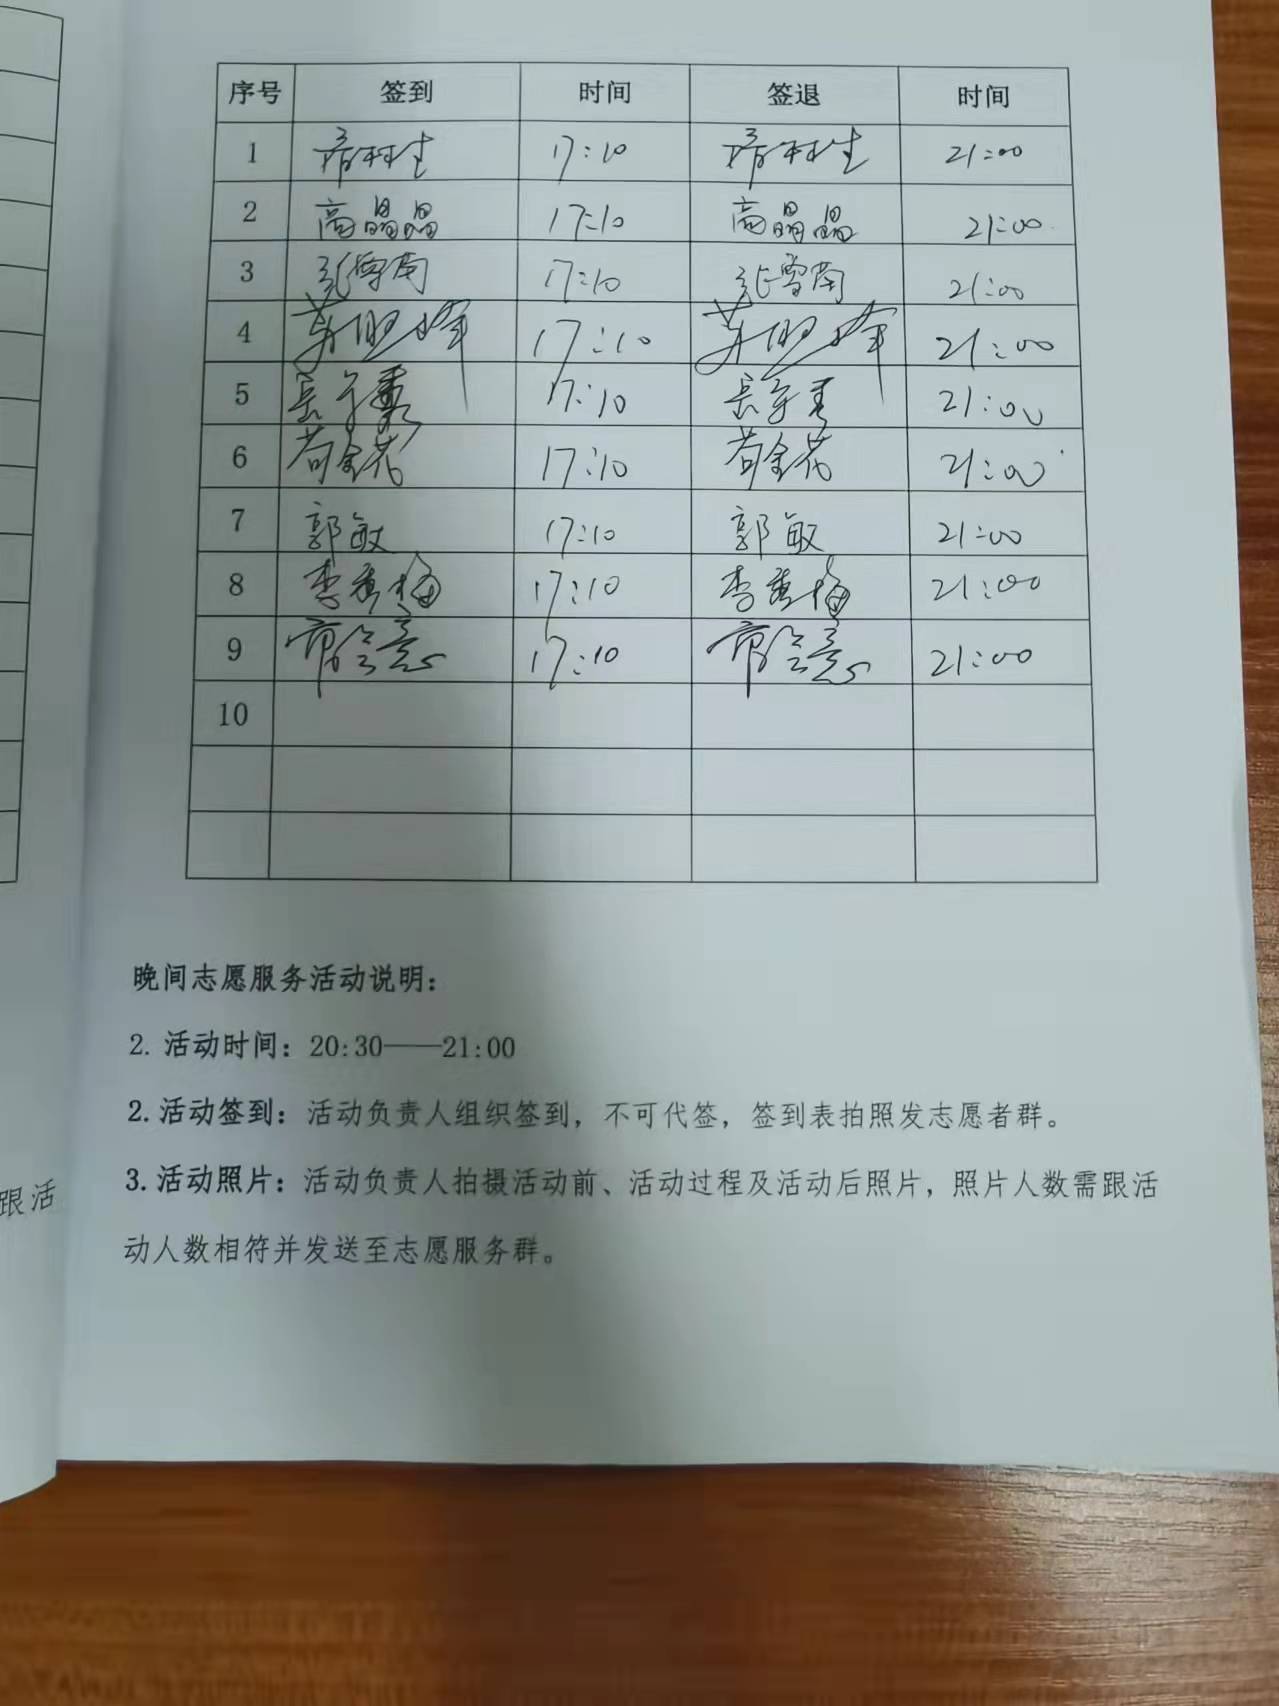 序号 签到 时间 签退 时间
1 17:10 21:00
2 高晶晶 17:10 高晶晶 21:00
3 17:10 21:00
4 17:10 21:00
5 17:10 21:00
6 苟金花 17:10 苟金花 21:00
7 郭敏 17:10 郭敏 21:00
8 李秀梅 17:10 李秀梅 21:00
9 17:10 21:00
10
晚间志愿服务活动说明：
2. 活动时间：20:30——21:00
2. 活动签到：活动负责人组织签到，不可代签，签到表拍照发志愿者群。
3. 活动照片：活动负责人拍摄活动前、活动过程及活动后照片，照片人数需跟活
动人数相符并发送至志愿服务群。
跟活